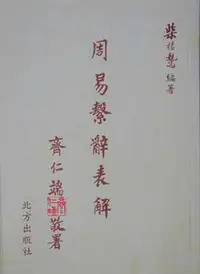 柴 編著
周易繫辭表解
齊仁端敬署
北方出版社